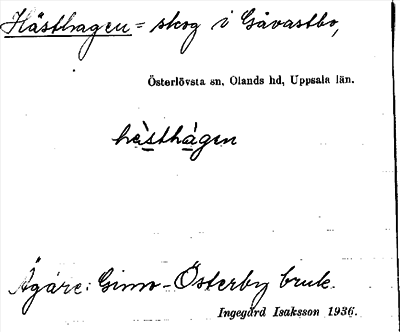 Hästhagen = skog i Gåvastbo,
Österlövsta sn, Olands hd, Uppsala län.
hὰsthὰgen
Ägare: Gimo-Österby bruk.
Ingegärd Isaksson 1936.